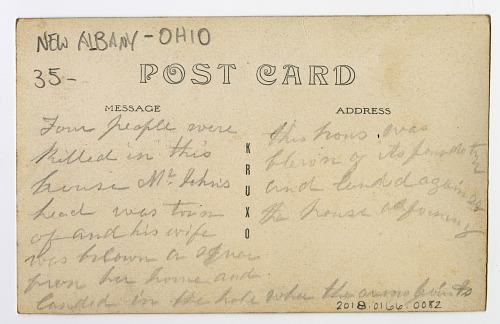 NEW ALBANY - OHIO
35-
POST CARD
MESSAGE
ADDRESS
KRUXO
Four people were
killed in this
house Mr. John's
head was torn
of and his wife
was blown a square
from her home and
landed in the hole wher the arrow points
this hous was
blown of its foundation
and landed against
the house adjoining
2018.0166.0082